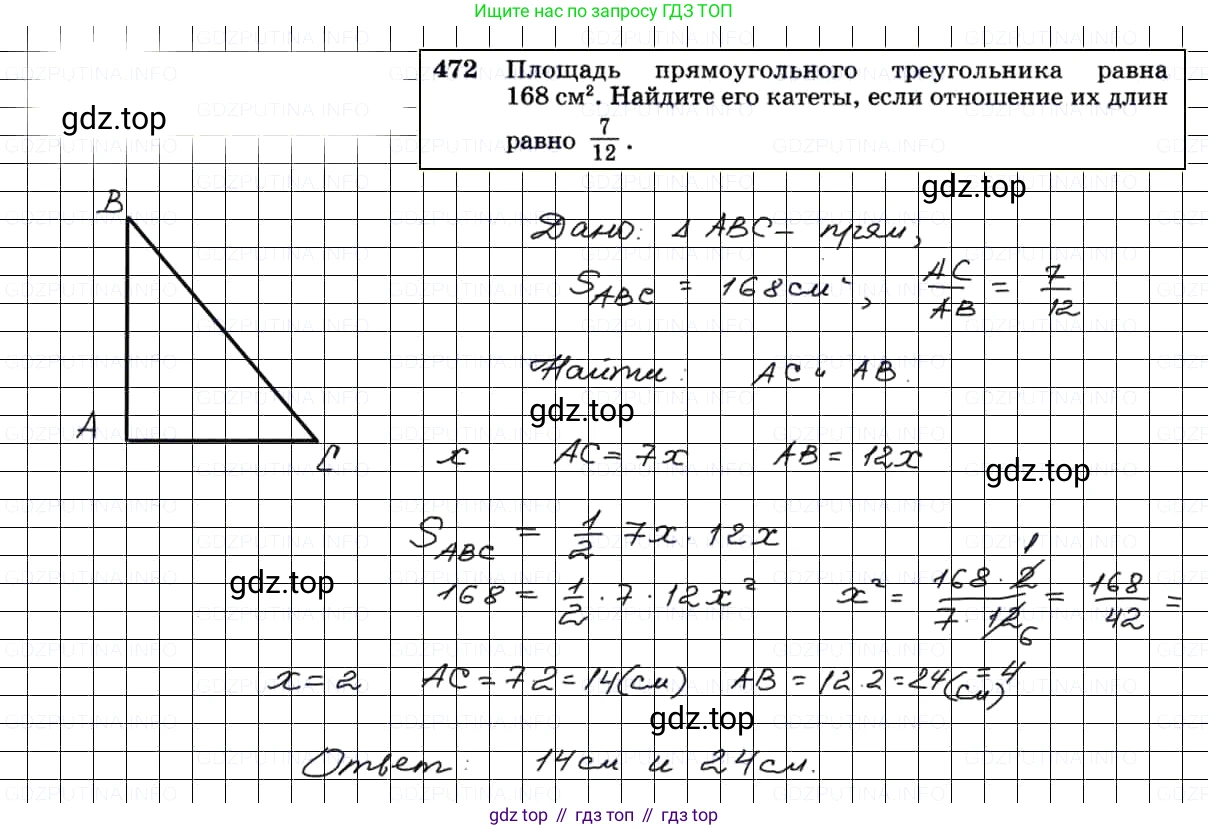 Ищите нас по запросу ГДЗ ТОП
472 Площадь прямоугольного треугольника равна
168 см². Найдите его катеты, если отношение их длин
равно 7/12.
gdz.top
gdz.top
B
Дано: Δ ABC – прям,
S_ABC = 168 см², AC/AB = 7/12
Найти: AC и AB.
gdz.top
A
C
x AC = 7x AB = 12x
gdz.top
S_ABC = 1/2 7x · 12x
gdz.top
168 = 1/2 · 7 · 12x² x² = 168 · 2/7 · 12 = 168/42 =
1
6
= 4
x = 2 AC = 7·2 = 14(см) AB = 12·2 = 24(см)
gdz.top
Ответ: 14 см и 24 см.
gdz top // гдз топ // gdz top